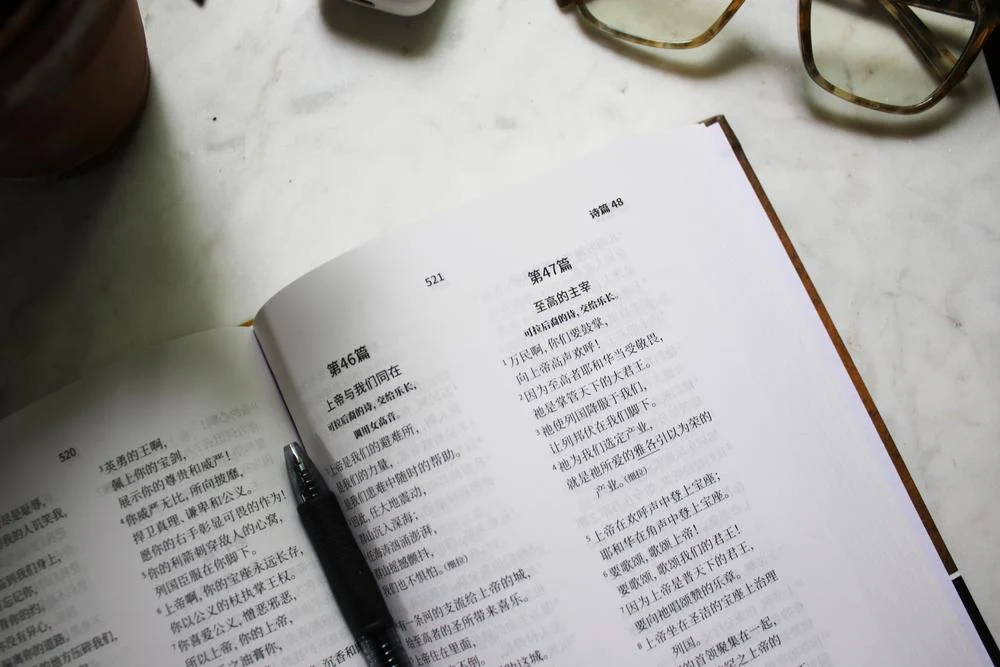 520
尽是凌辱，
的人讥笑我
到我们身上，
忘记你，
背你的约。
没有异心，
离你的道路。
的地方压碎我们，
3英勇的王啊，
佩上你的宝剑，
展示你的尊贵和威严！
4你威严无比，所向披靡，
捍卫真理、谦卑和公义。
愿你的右手彰显可畏的作为！
5你的利箭刺穿敌人的心窝，
列国臣服在你脚下。
6上帝啊，你的宝座永远长存，
你以公义的杖执掌王权。
7你喜爱公义，憎恶邪恶，
所以上帝，你的上帝，
之油膏你，
沉香和
521
诗篇 48
第46篇
上帝与我们同在
可拉后裔的诗，交给乐长，
调用女高音。
上帝是我们的避难所，
是我们的力量，
是我们患难中随时的帮助。
因此，任大地震动，
群山沉入深海；
任海涛汹涌澎湃，
群山摇撼颤抖，
我们也不惧怕。（细拉）
有一条河的支流给上帝的城，
给至高者的圣所带来喜乐。
上帝住在里面，
必不动摇。
助这城。
第47篇
至高的主宰
可拉后裔的诗，交给乐长。
1万民啊，你们要鼓掌，
向上帝高声欢呼！
2因为至高者耶和华当受敬畏，
祂是掌管天下的大君王。
3祂使列国降服于我们，
让列邦伏在我们脚下。
4祂为我们选定产业，
就是祂所爱的雅各引以为荣的
产业。（细拉）
5上帝在欢呼声中登上宝座；
耶和华在角声中登上宝座。
6要歌颂，歌颂上帝！
要歌颂，歌颂我们的君王！
7因为上帝是普天下的君王，
要向祂唱颂赞的乐章。
8上帝坐在圣洁的宝座上治理
列国。
的首领聚集在一起，
罕之上帝的